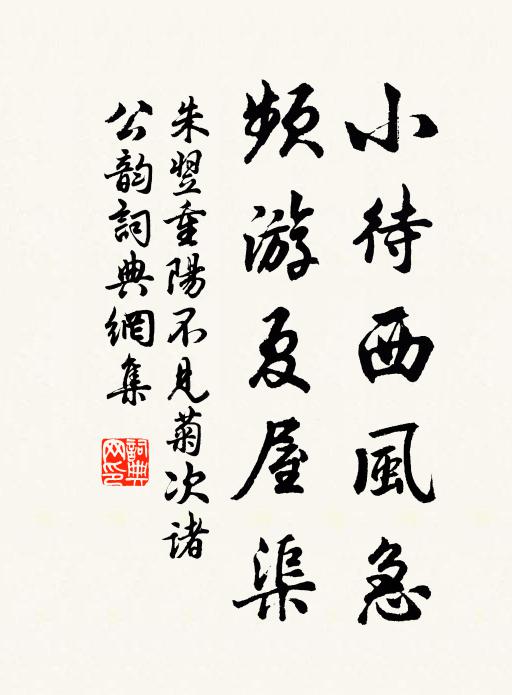 小待西風急
頻游夏屋渠
朱翌重陽不見菊次諸
公韵詞典網集
詞典
网印